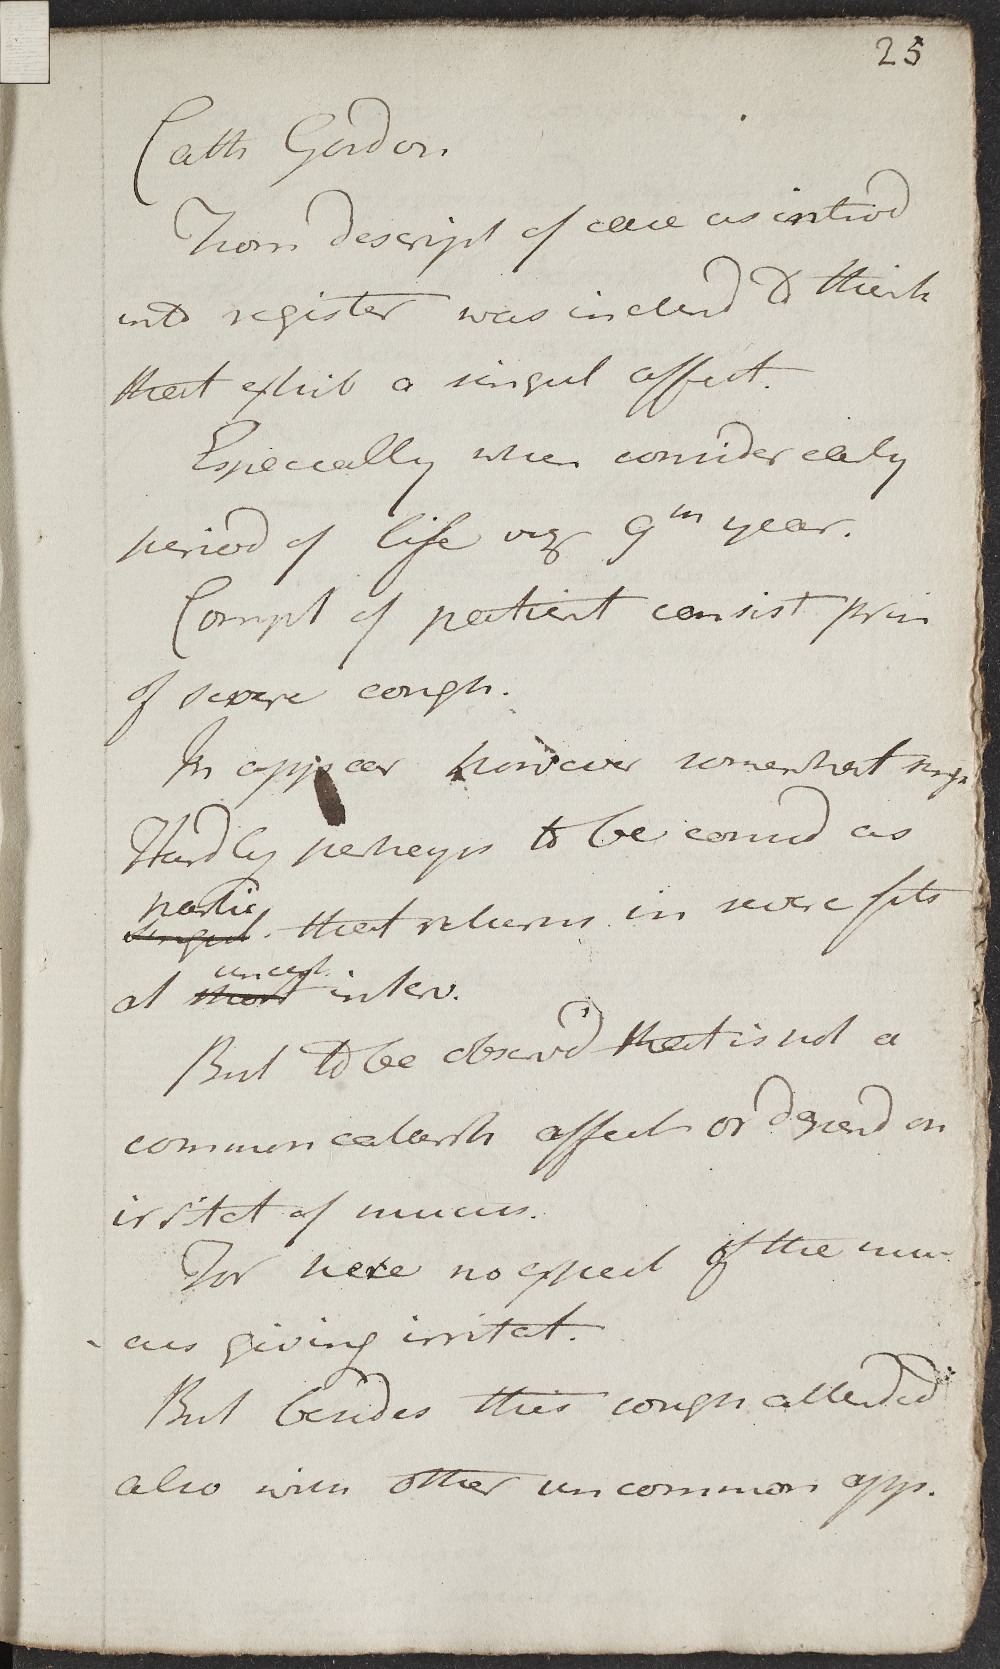 25
Cath Gordon
From descript of case as introd
into register was inclend to think
that exhib a singul affect.
Especially when consider early
period of life viz 9th year.
Compt of patient consist prin
of severe cough.
In appear however somewhat sing
Hardly perhaps to be consid as
partic
singul. that returns in severe fits
at uncert
short interv.
But to be observd that is not a
common catarrh affect or depend on
irritat of mucus.
For here no expect of the mu-
cus giving irritat.
But besides this cough attended
also with other uncommon app.